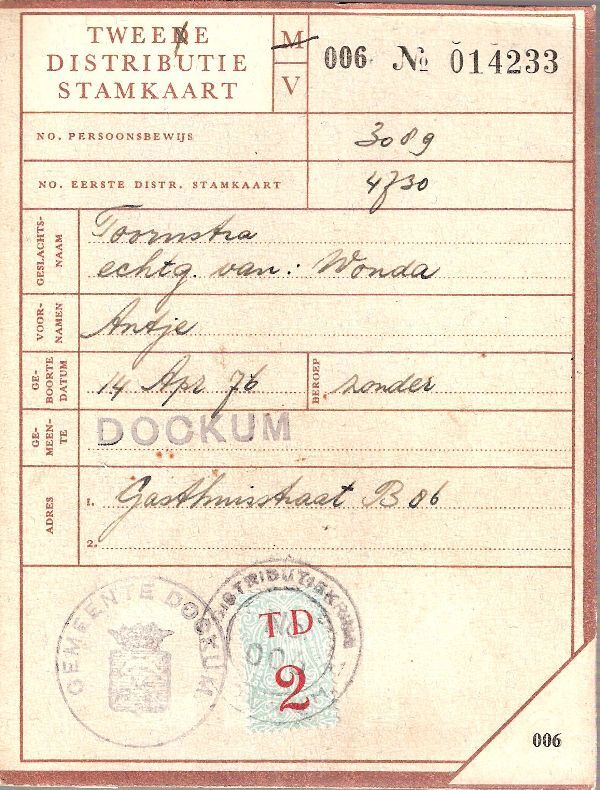 TWEEDE
DISTRIBUTIE
STAMKAART
M
V
006 No 014233
NO. PERSOONSBEWIJS
3089
NO. EERSTE DISTR. STAMKAART
4730
GESLACHTS-
NAAM
Toornstra
echtg. van: Wonda
VOOR-
NAMEN
Antje
GE-
BOORTE
DATUM
14 Apr 76
BEROEP
zonder
GE-
MEEN-
TE
DOCKUM
ADRES
1. Gasthuisstraat B 06
2.
GEMEENTE DOCKUM
DISTRIBUTIEKRING
TD
2
006